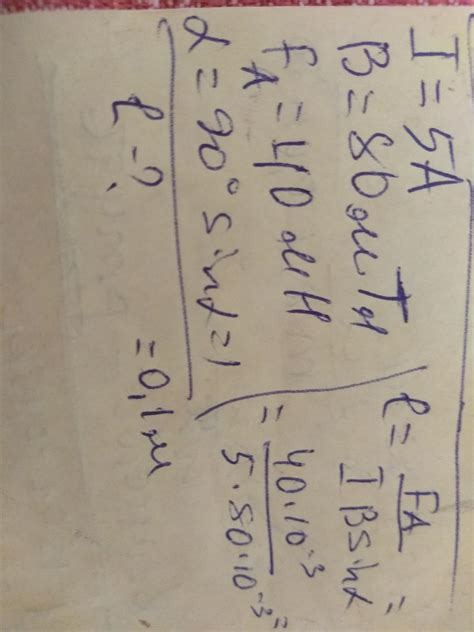 I = 5A
B = 80 мТл
F_A = 40 мН
α = 90° sinα = 1
l - ?
l = F_A / I B sinα =
= 40·10⁻³ / 5·80·10⁻³ =
= 0,1 м